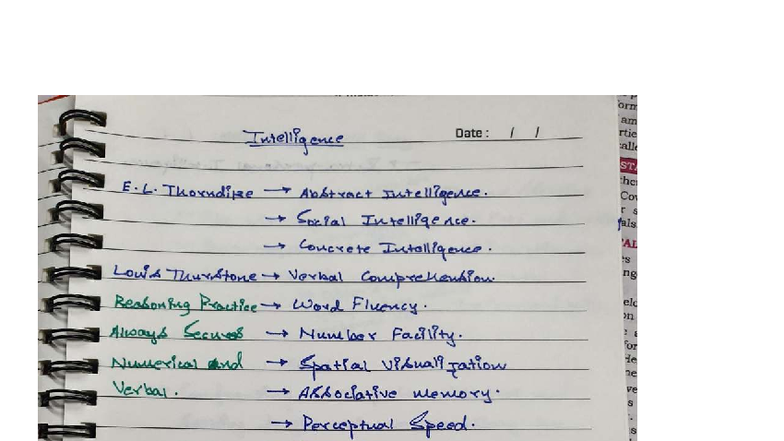 Intelligence
Date: / /
E.L. Thorndike → Abstract Intelligence.
→ Social Intelligence.
→ Concrete Intelligence.
Lowis Thurstone → Verbal Comprehension.
Reasoning Practice → Word Fluency.
Always Secures → Number Facility.
Numerical and → Spatial Visualization
Verbal. → Associative memory.
→ Perceptual Speed.